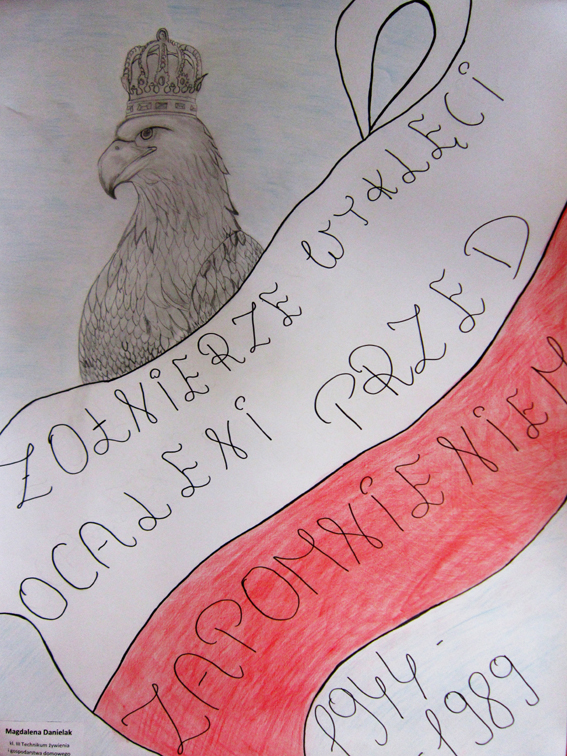 ŻOŁNIERZE WYKLĘCI
OCALENI PRZED
ZAPOMNIENIEM
1944-
1989
Magdalena Danielak
kl. III Technikum żywienia
i gospodarstwa domowego